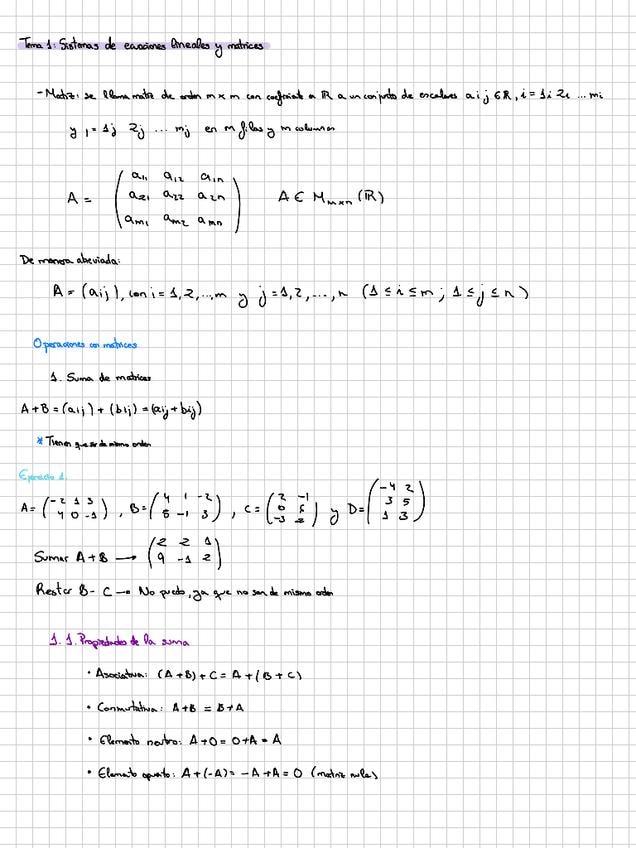 Tema 1: Sistemas de ecuaciones lineales y matrices
- Matriz: se llama matriz de orden m x m con coeficiente a ℝ a un conjunto de escalares a i j ∈ ℝ, i = 1i 2i ... mi
y j = 1j 2j ... mj en m filas y m columnas
A = ( a11 a12 a1n
a21 a22 a2n
am1 am2 amn ) A ∈ Mmxn (ℝ)
De manera abreviada:
A = (aij), con i = 1, 2, ..., m y j = 1, 2, ..., n (1 ≤ i ≤ m ; 1 ≤ j ≤ n)
Operaciones con matrices
1. Suma de matrices
A + B = (aij) + (bij) = (aij + bij)
* Tienen que ser de mismo orden
Ejercicio 1.
A = ( -2 1 3 / 4 0 -1 ), B = ( 4 1 -2 / 5 -1 3 ), C = ( 2 -1 / 0 5 / -3 2 ) y D = ( -4 2 / 3 5 / 1 3 )
Sumar A + B → ( 2 2 1 / 9 -1 2 )
Restar B - C → No puedo, ya que no son de mismo orden
1. 1. Propiedades de la suma
• Asociativa: (A + B) + C = A + (B + C)
• Conmutativa: A + B = B + A
• Elemento neutro: A + O = O + A = A
• Elemento opuesto: A + (-A) = -A + A = O (matriz nula)